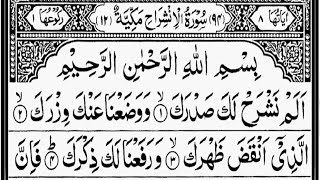 اٰیَاتُهَا ۸ (۹۴) سُوْرَةُ الْاِنْشِرَاحِ مَكِّيَّةٌ (۱۲) رُكُوْعُهَا ۱
بِسْمِ اللّٰهِ الرَّحْمٰنِ الرَّحِيْمِ
اَلَمْ نَشْرَحْ لَكَ صَدْرَكَ ۙ﴿۱﴾ وَوَضَعْنَا عَنْكَ وِزْرَكَ ۙ﴿۲﴾
الَّذِيْۤ اَنْقَضَ ظَهْرَكَ ۙ﴿۳﴾ وَرَفَعْنَا لَكَ ذِكْرَكَ ؕ﴿۴﴾ فَاِنَّ